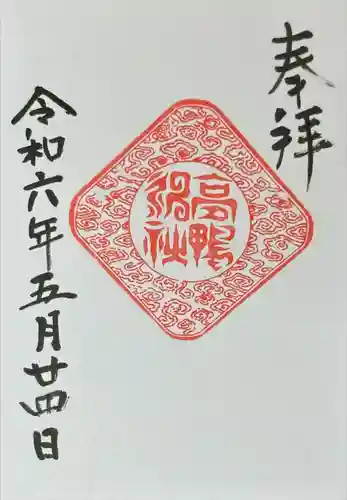 奉拝
高鴨神社
令和六年五月廿四日